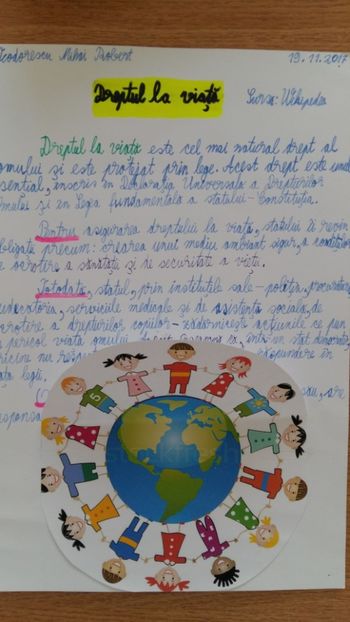 Teodorescu Mihai Robert 19.11.2017
Dreptul la viață Sursa: Wikipedia
Dreptul la viață este cel mai natural drept al
omului și este protejat prin lege. Acest drept este unul
esențial, înscris în Declarația Universală a Drepturilor
Omului și în Legea fundamentală a statului - Constituția.
Pentru asigurarea dreptului la viață, statului îi revin
obligații precum: crearea unui mediu ambiant sigur, a condițiilor
de ocrotire a sănătății și de securitate a vieții.
Totodată, statul, prin instituțiile sale - poliția, procuratura,
judecătoria, serviciile medicale și de asistență socială, de
ocrotire a drepturilor copiilor - acțiunile ce pun
în pericol viața omului într-un stat democratic
oricine nu răspundere în
fața legii.
sau, are
responsa
5